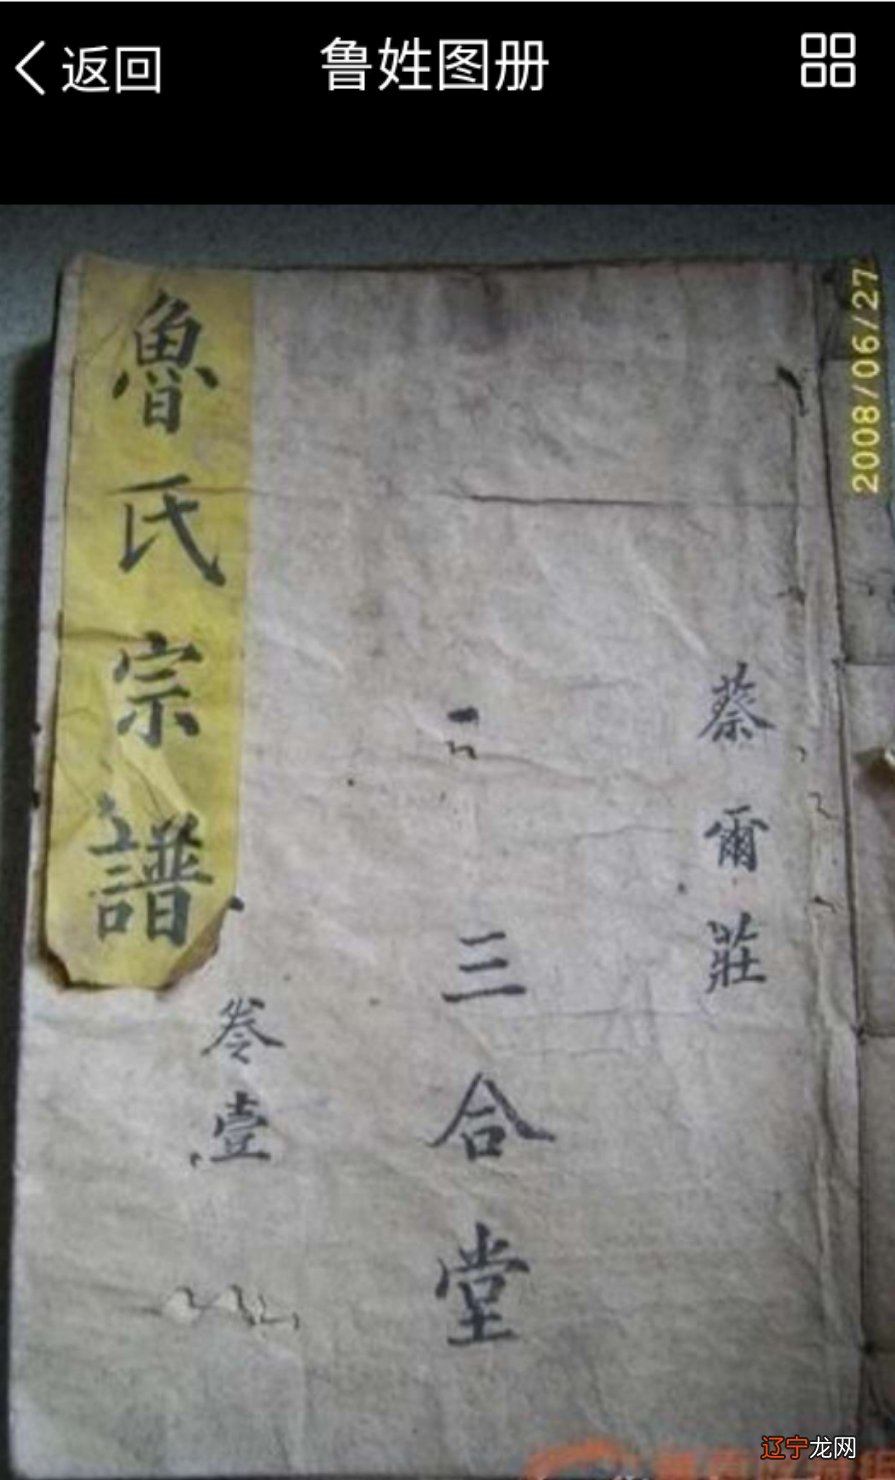 返回
鲁姓图册
2008/06/27
蔡爾莊
三合堂
魯氏宗譜
卷壹
辽宁龙网